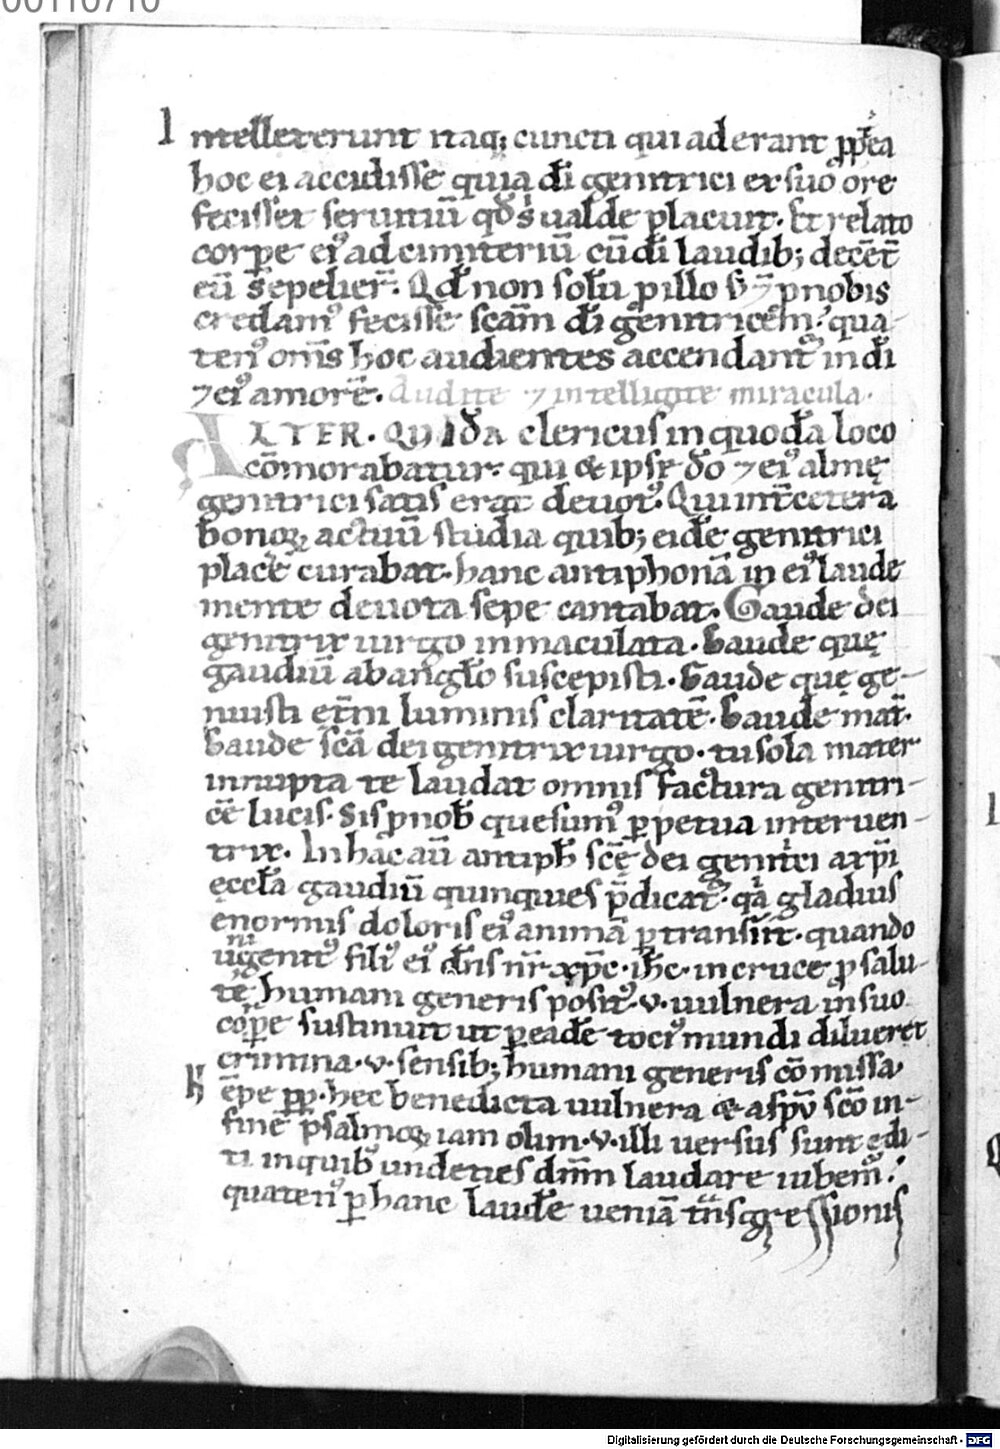 00110710
Intellexerunt itaq; cuncti qui ad erant pp̄ea
hoc ei accidisse quia di genitrici ex suo ore
fecisset seruitiū qd s ualde placuit. Et relato
corpe ei' ad cimiteriū cū di laudib; decēt̄
eū sepelier̄. Qd non solū p illo s; ⁊ p nobis
credam' fecisse scām di genitricem. qua-
ten' om̄s hoc audientes accendant' in di
⁊ ei' amorē. Audite ⁊ intelligite miracula.
ALTER. QUIDA clericus in quodā loco
cōmorabatur. qui & ipse do ⁊ ei' almę
genitrici satis erat deuot'. Qui int̄ cetera
bonoꝝ actuū studia quib; eidē genitrici
place curabat. hanc antiphonā in ei' laude
mente deuota sepe cantabat. Gaude dei
genitrix uirgo inmaculata. Gaude quę
gaudiū ab anglo suscepisti. Gaude quę ge-
nuisti et̄ni luminis claritatē. Gaude mat̄.
Gaude scā dei genitrix uirgo. tu sola mater
innupta te laudat omnis factura genitri-
cē lucis. Sis p nob quesum' ppetua interuen-
trix. In hac aū antiph scę dei genit̄ci a xpi
ęccla gaudiū quinquies p̄dicat'. qa gladius
enormis doloris ei' animā ptransiit. quando
unigenit' fili' ei' dn̄s nr̄ xp̄c ih̄c in cruce p salu-
te humani generis posit' .v. uulnera in suo
corpe sustinuit ut p eadē toci' mundi dilueret
crimina .v. sensib; humani generis cōmissa.
ēpe pp hec benedicta uulnera & a spū scō in-
finē psalmoꝝ iam olim .v. illi uersus sunt ędi-
ti in quib' undeties dn̄m laudare iubem'.
quaten' p hanc laudē ueniā tn̄sgressionis
Digitalisierung gefördert durch die Deutsche Forschungsgemeinschaft - DFG